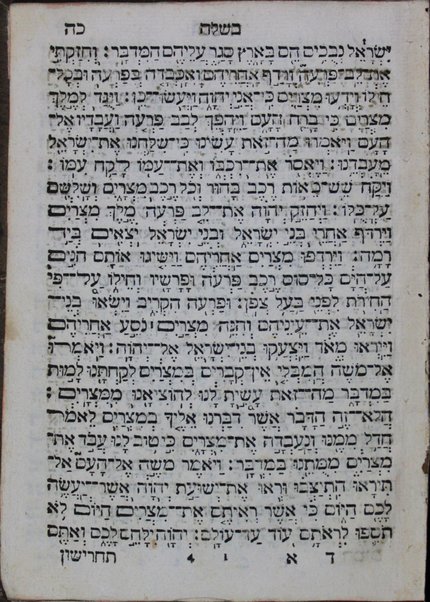 בשלח כה
ישראל נבכים הם בארץ סגר עליהם המדבר: וחזקתי
את־לב־פרעה ורדף אחריהם ואכבדה בפרעה ובכל־
חילו וידעו מצרים כי־אני יהוה ויעשו־כן: ויגד למלך
מצרים כי ברח העם ויהפך לבב פרעה ועבדיו אל־
העם ויאמרו מה־זאת עשינו כי־שלחנו את־ישראל
מעבדנו: ויאסר את־רכבו ואת־עמו לקח עמו:
ויקח שש־מאות רכב בחור וכל רכב מצרים ושלשם
על־כלו: ויחזק יהוה את־לב פרעה מלך מצרים
וירדף אחרי בני ישראל ובני ישראל יצאים ביד
רמה: וירדפו מצרים אחריהם וישיגו אותם חנים
על־הים כל־סוס רכב פרעה ופרשיו וחילו על־־פי
החירת לפני בעל צפן: ופרעה הקריב וישאו בני־
ישראל את־עיניהם והנה מצרים ׀ נסע אחריהם
וייראו מאד ויצעקו בני־ישראל אל־יהוה: ויאמרו
אל־משה המבלי אין־קברים במצרים לקחתנו למות
במדבר מה־זאת עשית לנו להוציאנו ממצרים:
הלא־זה הדבר אשר דברנו אליך במצרים לאמר
חדל ממנו ונעבדה את־מצרים כי טוב לנו עבד את־
מצרים ממתנו במדבר: ויאמר משה אל־העם אל־
תיראו התיצבו וראו את־ישועת יהוה אשר־יעשה
לכם היום כי אשר ראיתם את־מצרים היום לא
תספו לראתם עוד עד־עולם: יהוה ילחם לכם ואתם
ד א 1 4 תחרישון